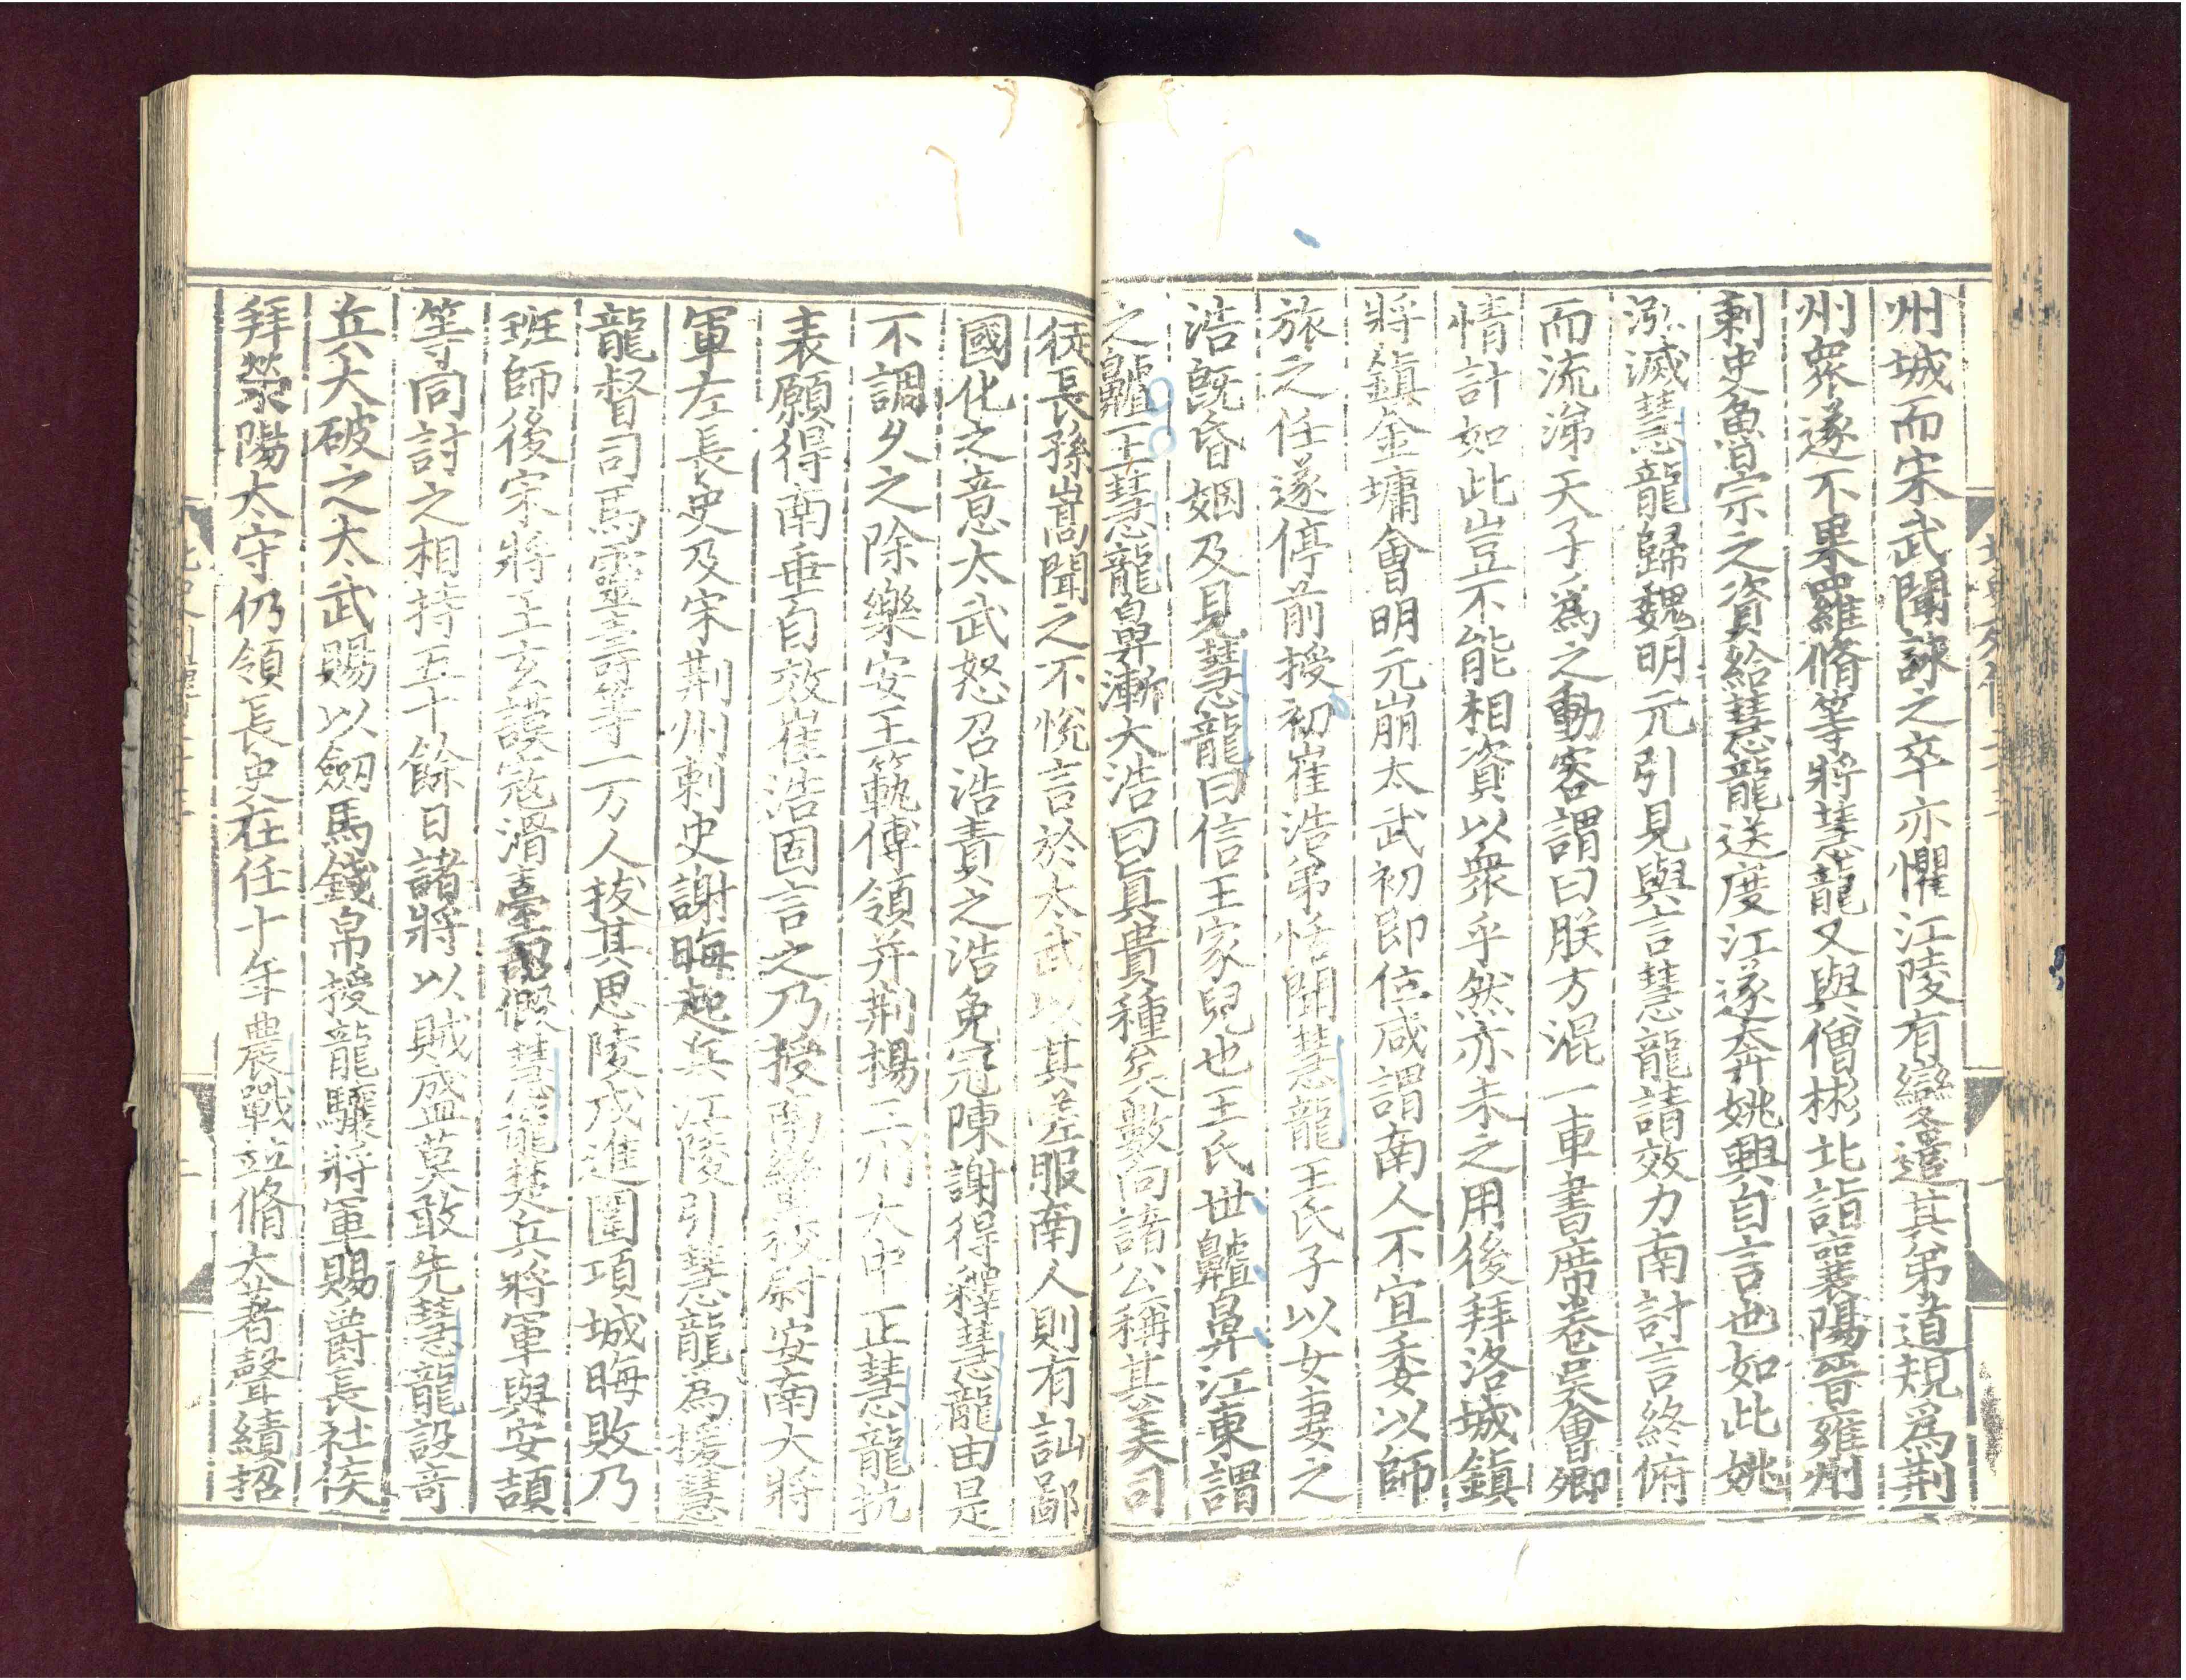 州城而宋武聞詠之卒亦懼江陵有變遽遣其弟道規爲荆
州衆遂不果羅脩等將慧龍又與僧彬北詣襄陽晉雍州
刺史魯宗之資給慧龍送度江遂奔姚興自言也如此姚
泓滅慧龍歸魏明元引見與言慧龍請效力南討言終俯
而流涕天子爲之動容謂曰朕方混一車書席卷吳會卿
情計如此豈不能相資以衆乎然亦未之用後拜洛城鎮
將鎮金墉會明元崩太武初即位咸謂南人不宜委以師
旅之任遂停前授初崔浩弟恬聞慧龍王氏子以女妻之
浩旣昏姻及見慧龍曰信王家兒也王氏世齇鼻江東謂
之齇王慧龍鼻漸大浩曰眞貴種矣數向諸公稱其美司
徒長孫嵩聞之不悅言於太武以其嘆服南人則有訕鄙
國化之意太武怒召浩責之浩免冠陳謝得釋慧龍由是
不調久之除樂安王範傅領并荆揚三州大中正慧龍抗
表願得南垂自效崔浩固言之乃授南蠻校尉安南大將
軍左長史及宋荆州刺史謝晦起兵江陵引慧龍爲援慧
龍督司馬靈壽等一万人拔其思陵戍進圍項城晦敗乃
班師後宋將王玄謨寇滑臺詔假慧龍楚兵將軍與安頡
等同討之相持五十餘日諸將以賊盛莫敢先慧龍設奇
兵大破之太武賜以劒馬錢帛授龍驤將軍賜爵長社侯
拜滎陽太守仍領長史在任十年農戰並脩大著聲績招